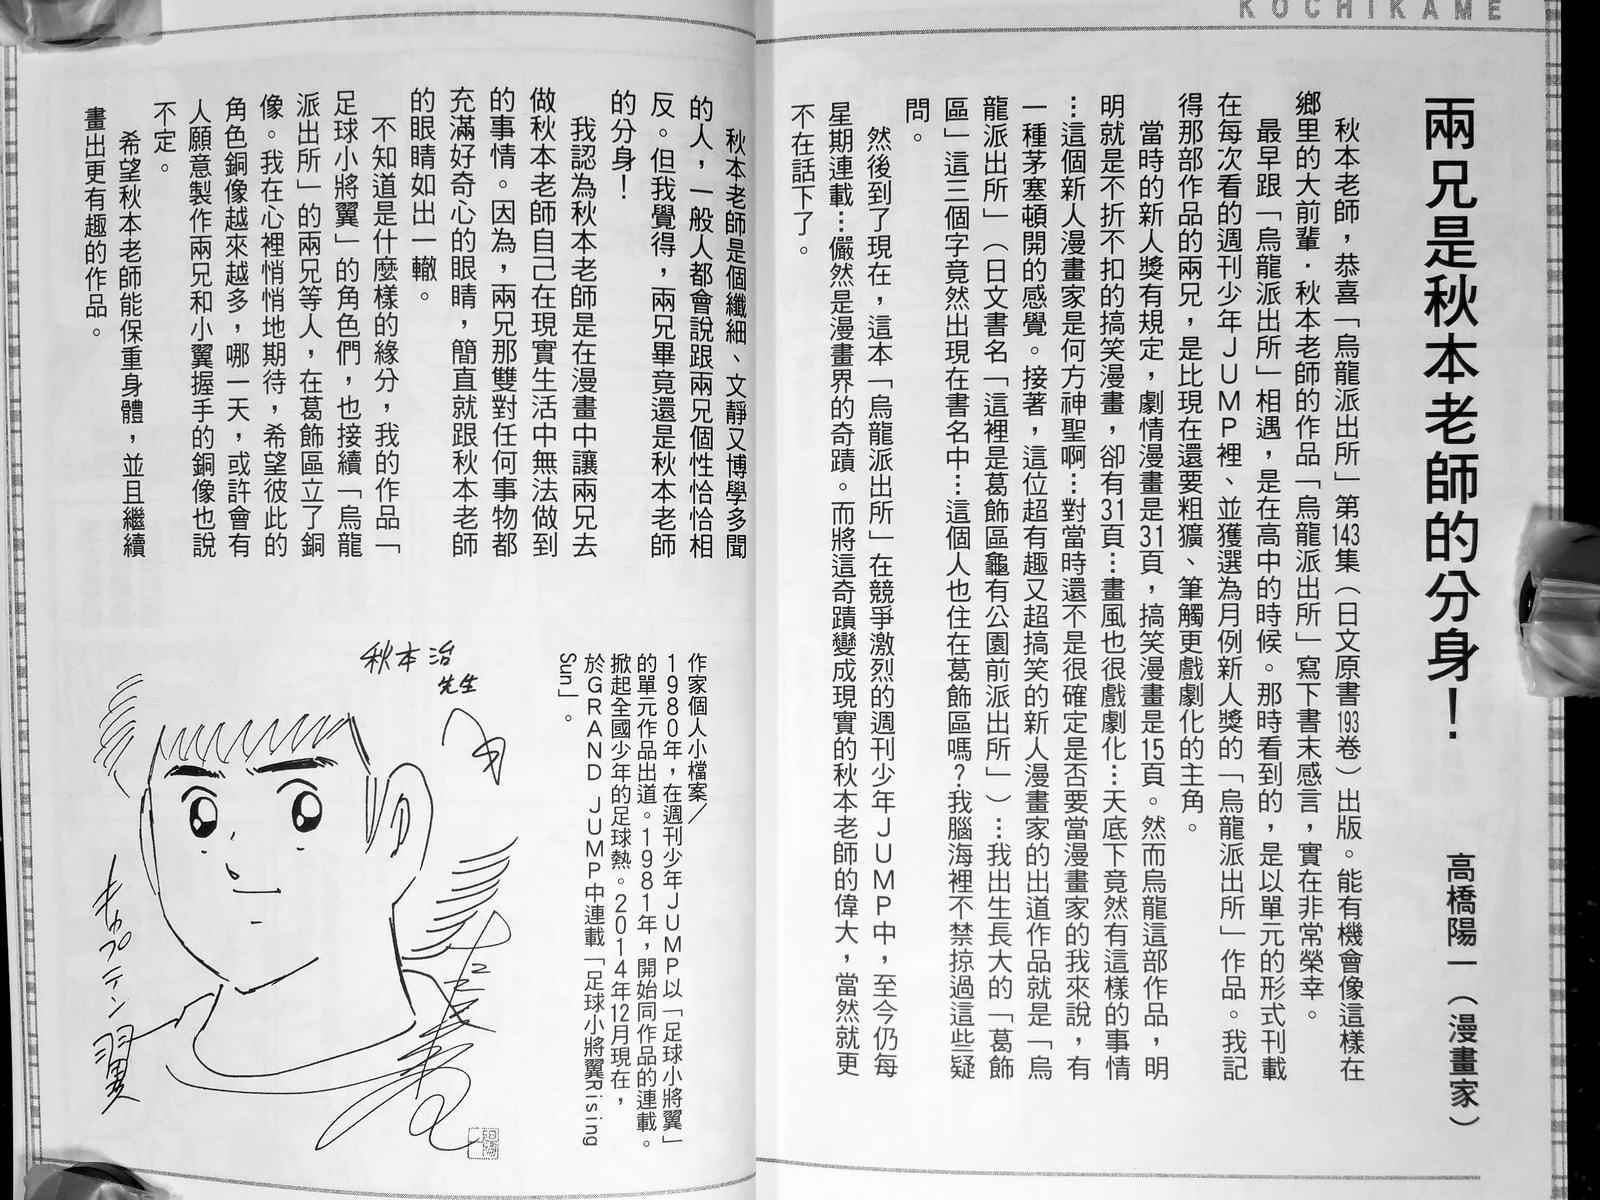 KOCHIKAME
兩兄是秋本老師的分身！
高橋陽一（漫畫家）
秋本老師，恭喜「烏龍派出所」第143集（日文原書193卷）出版。能有機會像這樣在
鄉里的大前輩．秋本老師的作品「烏龍派出所」寫下書末感言，實在非常榮幸。
最早跟「烏龍派出所」相遇，是在高中的時候。那時看到的，是以單元的形式刊載
在每次看的週刊少年ＪＵＭＰ裡、並獲選為月例新人獎的「烏龍派出所」作品。我記
得那部作品的兩兄，是比現在還要粗獷、筆觸更戲劇化的主角。
當時的新人獎有規定，劇情漫畫是31頁，搞笑漫畫是15頁。然而烏龍這部作品，明
明就是不折不扣的搞笑漫畫，卻有31頁…畫風也很戲劇化…天底下竟然有這樣的事情
…這個新人漫畫家是何方神聖啊…對當時還不是很確定是否要當漫畫家的我來說，有
一種茅塞頓開的感覺。接著，這位超有趣又超搞笑的新人漫畫家的出道作品就是「烏
龍派出所」（日文書名「這裡是葛飾區龜有公園前派出所」）…我出生長大的「葛飾
區」這三個字竟然出現在書名中…這個人也住在葛飾區嗎？我腦海裡不禁掠過這些疑
問。
然後到了現在，這本「烏龍派出所」在競爭激烈的週刊少年ＪＵＭＰ中，至今仍每
星期連載…儼然是漫畫界的奇蹟。而將這奇蹟變成現實的秋本老師的偉大，當然就更
不在話下了。
秋本老師是個纖細、文靜又博學多聞
的人，一般人都會說跟兩兄個性恰恰相
反。但我覺得，兩兄畢竟還是秋本老師
的分身！
我認為秋本老師是在漫畫中讓兩兄去
做秋本老師自己在現實生活中無法做到
的事情。因為，兩兄那雙對任何事物都
充滿好奇心的眼睛，簡直就跟秋本老師
的眼睛如出一轍。
不知道是什麼樣的緣分，我的作品「
足球小將翼」的角色們，也接續「烏龍
派出所」的兩兄等人，在葛飾區立了銅
像。我在心裡悄悄地期待，希望彼此的
角色銅像越來越多，哪一天，或許會有
人願意製作兩兄和小翼握手的銅像也說
不定。
希望秋本老師能保重身體，並且繼續
畫出更有趣的作品。
作家個人小檔案／
1980年，在週刊少年ＪＵＭＰ以「足球小將翼」
的單元作品出道。1981年，開始同作品的連載。
掀起全國少年的足球熱。2014年12月現在，
於ＧＲＡＮＤ ＪＵＭＰ中連載「足球小將翼Rising
Sun」。
秋本治
先生
キャプテン翼